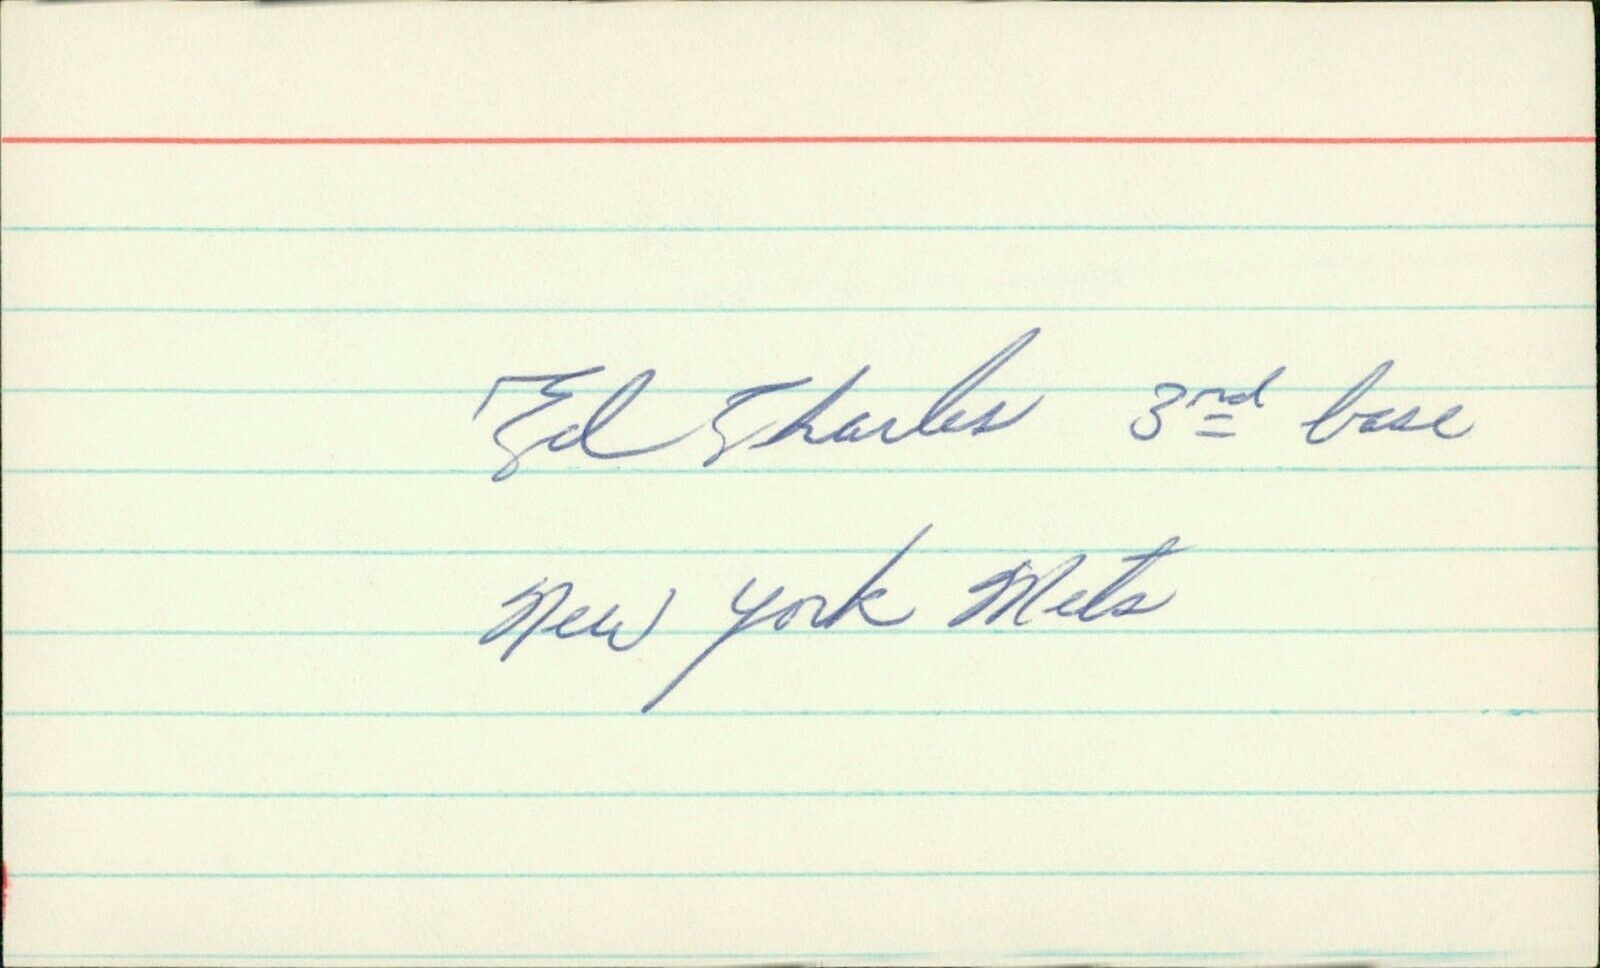 Ed Charles 3rd base
New York Mets